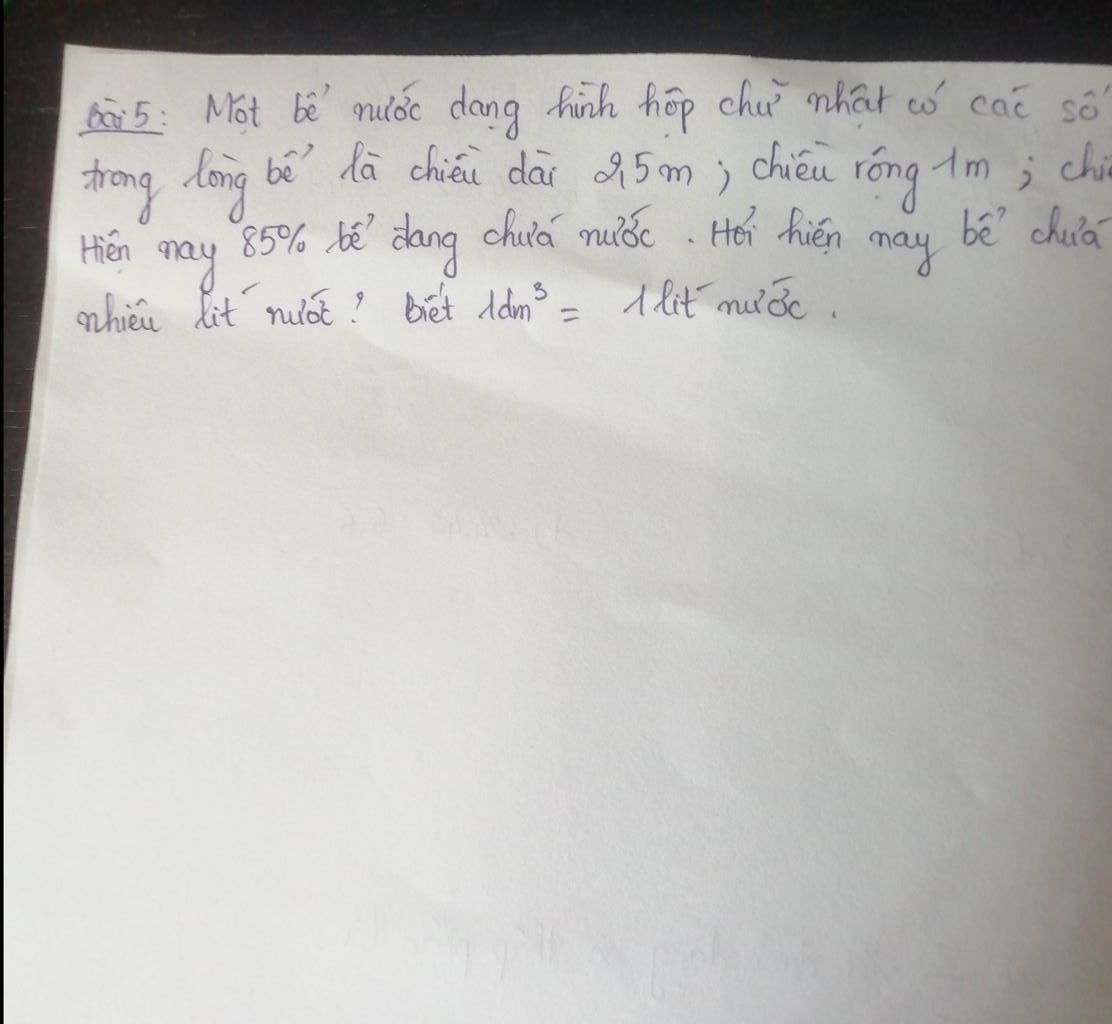 Bài 5: Một bể nước dạng hình hộp chữ nhật có các số
trong lòng bể là chiều dài 2,5m; chiều rộng 1m; chi
Hiện nay 85% bể đang chứa nước. Hỏi hiện nay bể chứa
nhiêu lít nước? biết 1dm³ = 1 lít nước.